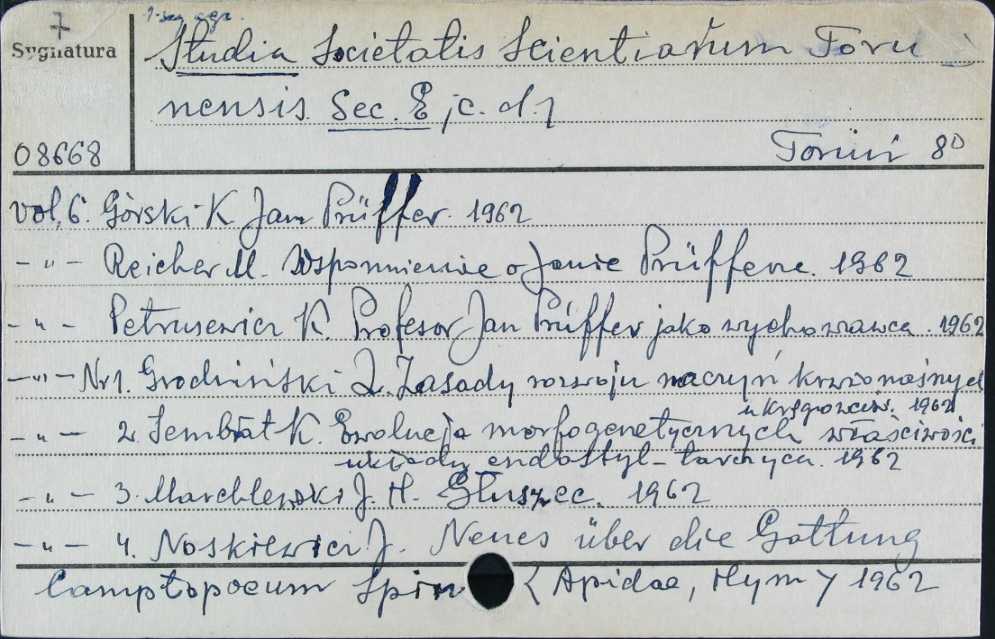 7
Sygnatura
Studia Societatis Scientiarum Toru
nensis. Sec. E /c. d./
08668
Toruń 8°
vol. 6. Górski K Jan Prüffer. 1962
-"- Reicher M. Wspomnienie o Janie Prüfferze. 1962
-"- Petrusewicz K. Profesor Jan Prüffer jako wychowawca. 1962
-"- Nr 1. Grodziński Z. Zasady rozwoju naczyń krwionośnych
u kręgowców. 1962
-"- 2. Sembrat K. Ewolucja morfogenetycznych właściwości
układu endostyl-tarczyca. 1962
-"- 3. Marchlewski J. H. Głuszec. 1962
-"- 4. Noskiewicz J. Neues über die Gattung
Camptopoeum Spin < Apidae, Hym > 1962